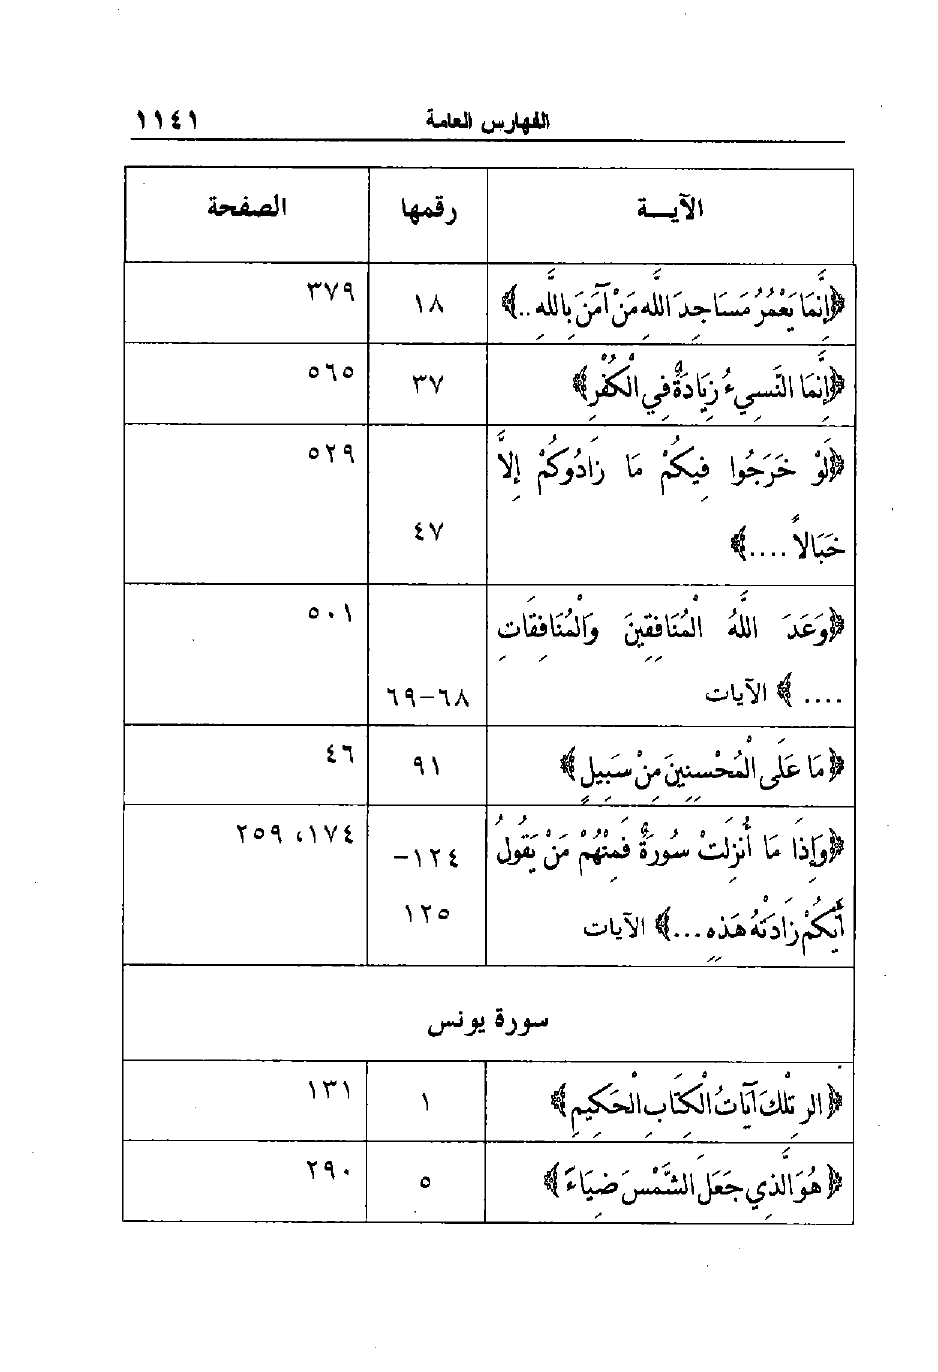 الفهارس العامة ١١٤١
الآيـــة رقمها الصفحة
﴿إِنَّمَا يَعْمُرُ مَسَاجِدَ اللَّهِ مَنْ آمَنَ بِاللَّهِ ..﴾ ١٨ ٣٧٩
﴿إِنَّمَا النَّسِيءُ زِيَادَةٌ فِي الْكُفْرِ﴾ ٣٧ ٥٦٥
﴿لَوْ خَرَجُوا فِيكُمْ مَا زَادُوكُمْ إِلاَّ ٥٢٩
خَبَالاً ....﴾ ٤٧
﴿وَعَدَ اللَّهُ الْمُنَافِقِينَ وَالْمُنَافِقَاتِ ٥٠١
.... ﴾ الآيات ٦٨-٦٩
﴿مَا عَلَى الْمُحْسِنِينَ مِنْ سَبِيلٍ﴾ ٩١ ٤٦
﴿وَإِذَا مَا أُنْزِلَتْ سُورَةٌ فَمِنْهُمْ مَنْ يَقُولُ ١٢٤- ١٧٤، ٢٥٩
أَيُّكُمْ زَادَتْهُ هَذِهِ ...﴾ الآيات ١٢٥
سورة يونس
﴿الر تِلْكَ آيَاتُ الْكِتَابِ الْحَكِيمِ﴾ ١ ١٣١
﴿هُوَ الَّذِي جَعَلَ الشَّمْسَ ضِيَاءً﴾ ٥ ٢٩٠